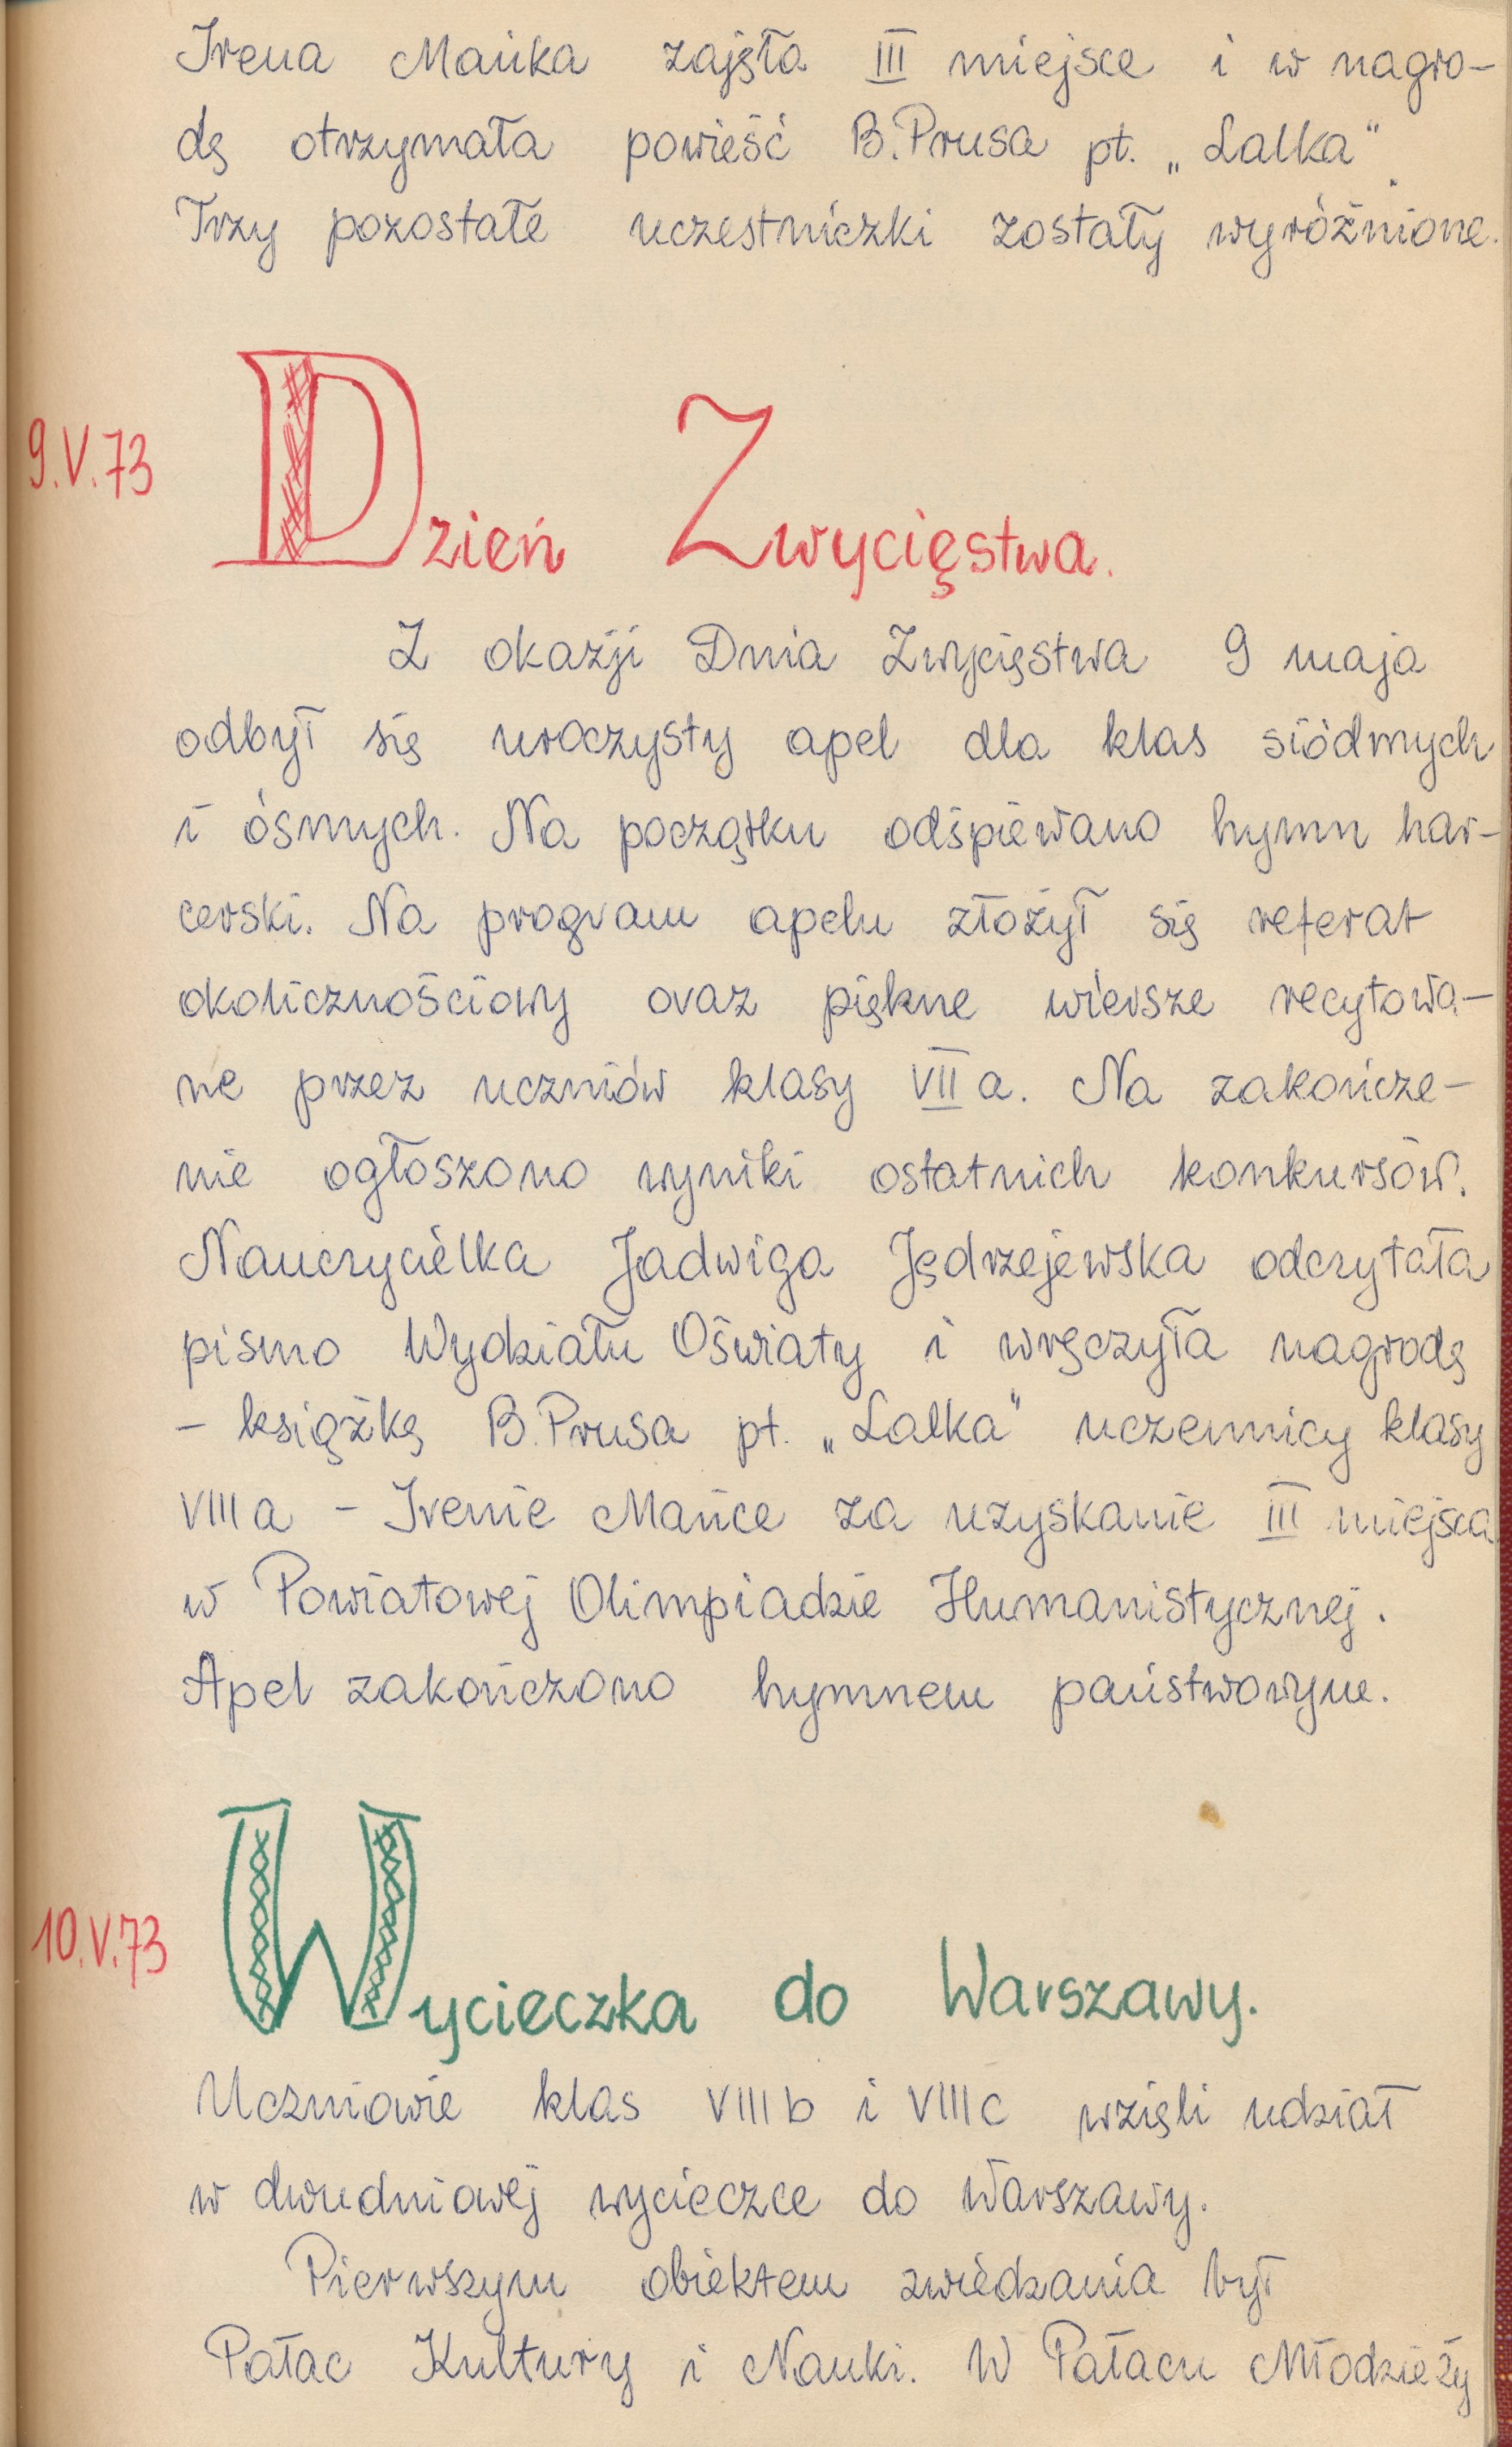 Irena Mańka zajęła III miejsce i w nagro-
dę otrzymała powieść B. Prusa pt. „Lalka".
Trzy pozostałe uczestniczki zostały wyróżnione.
9.V.73
Dzień Zwycięstwa.
Z okazji Dnia Zwycięstwa 9 maja
odbył się uroczysty apel dla klas siódmych
i ósmych. Na początku odśpiewano hymn har-
cerski. Na program apelu złożył się referat
okolicznościowy oraz piękne wiersze recytowa-
ne przez uczniów klasy VII a. Na zakończe-
nie ogłoszono wyniki ostatnich konkursów.
Nauczycielka Jadwiga Jędrzejewska odczytała
pismo Wydziału Oświaty i wręczyła nagrodę
- książkę B. Prusa pt. „Lalka" uczennicy klasy
VIII a - Irenie Mańce za uzyskanie III miejsca
w Powiatowej Olimpiadzie Humanistycznej.
Apel zakończono hymnem państwowym.
10.V.73
Wycieczka do Warszawy.
Uczniowie klas VIII b i VIII c wzięli udział
w dwudniowej wycieczce do Warszawy.
Pierwszym obiektem zwiedzania był
Pałac Kultury i Nauki. W Pałacu Młodzieży